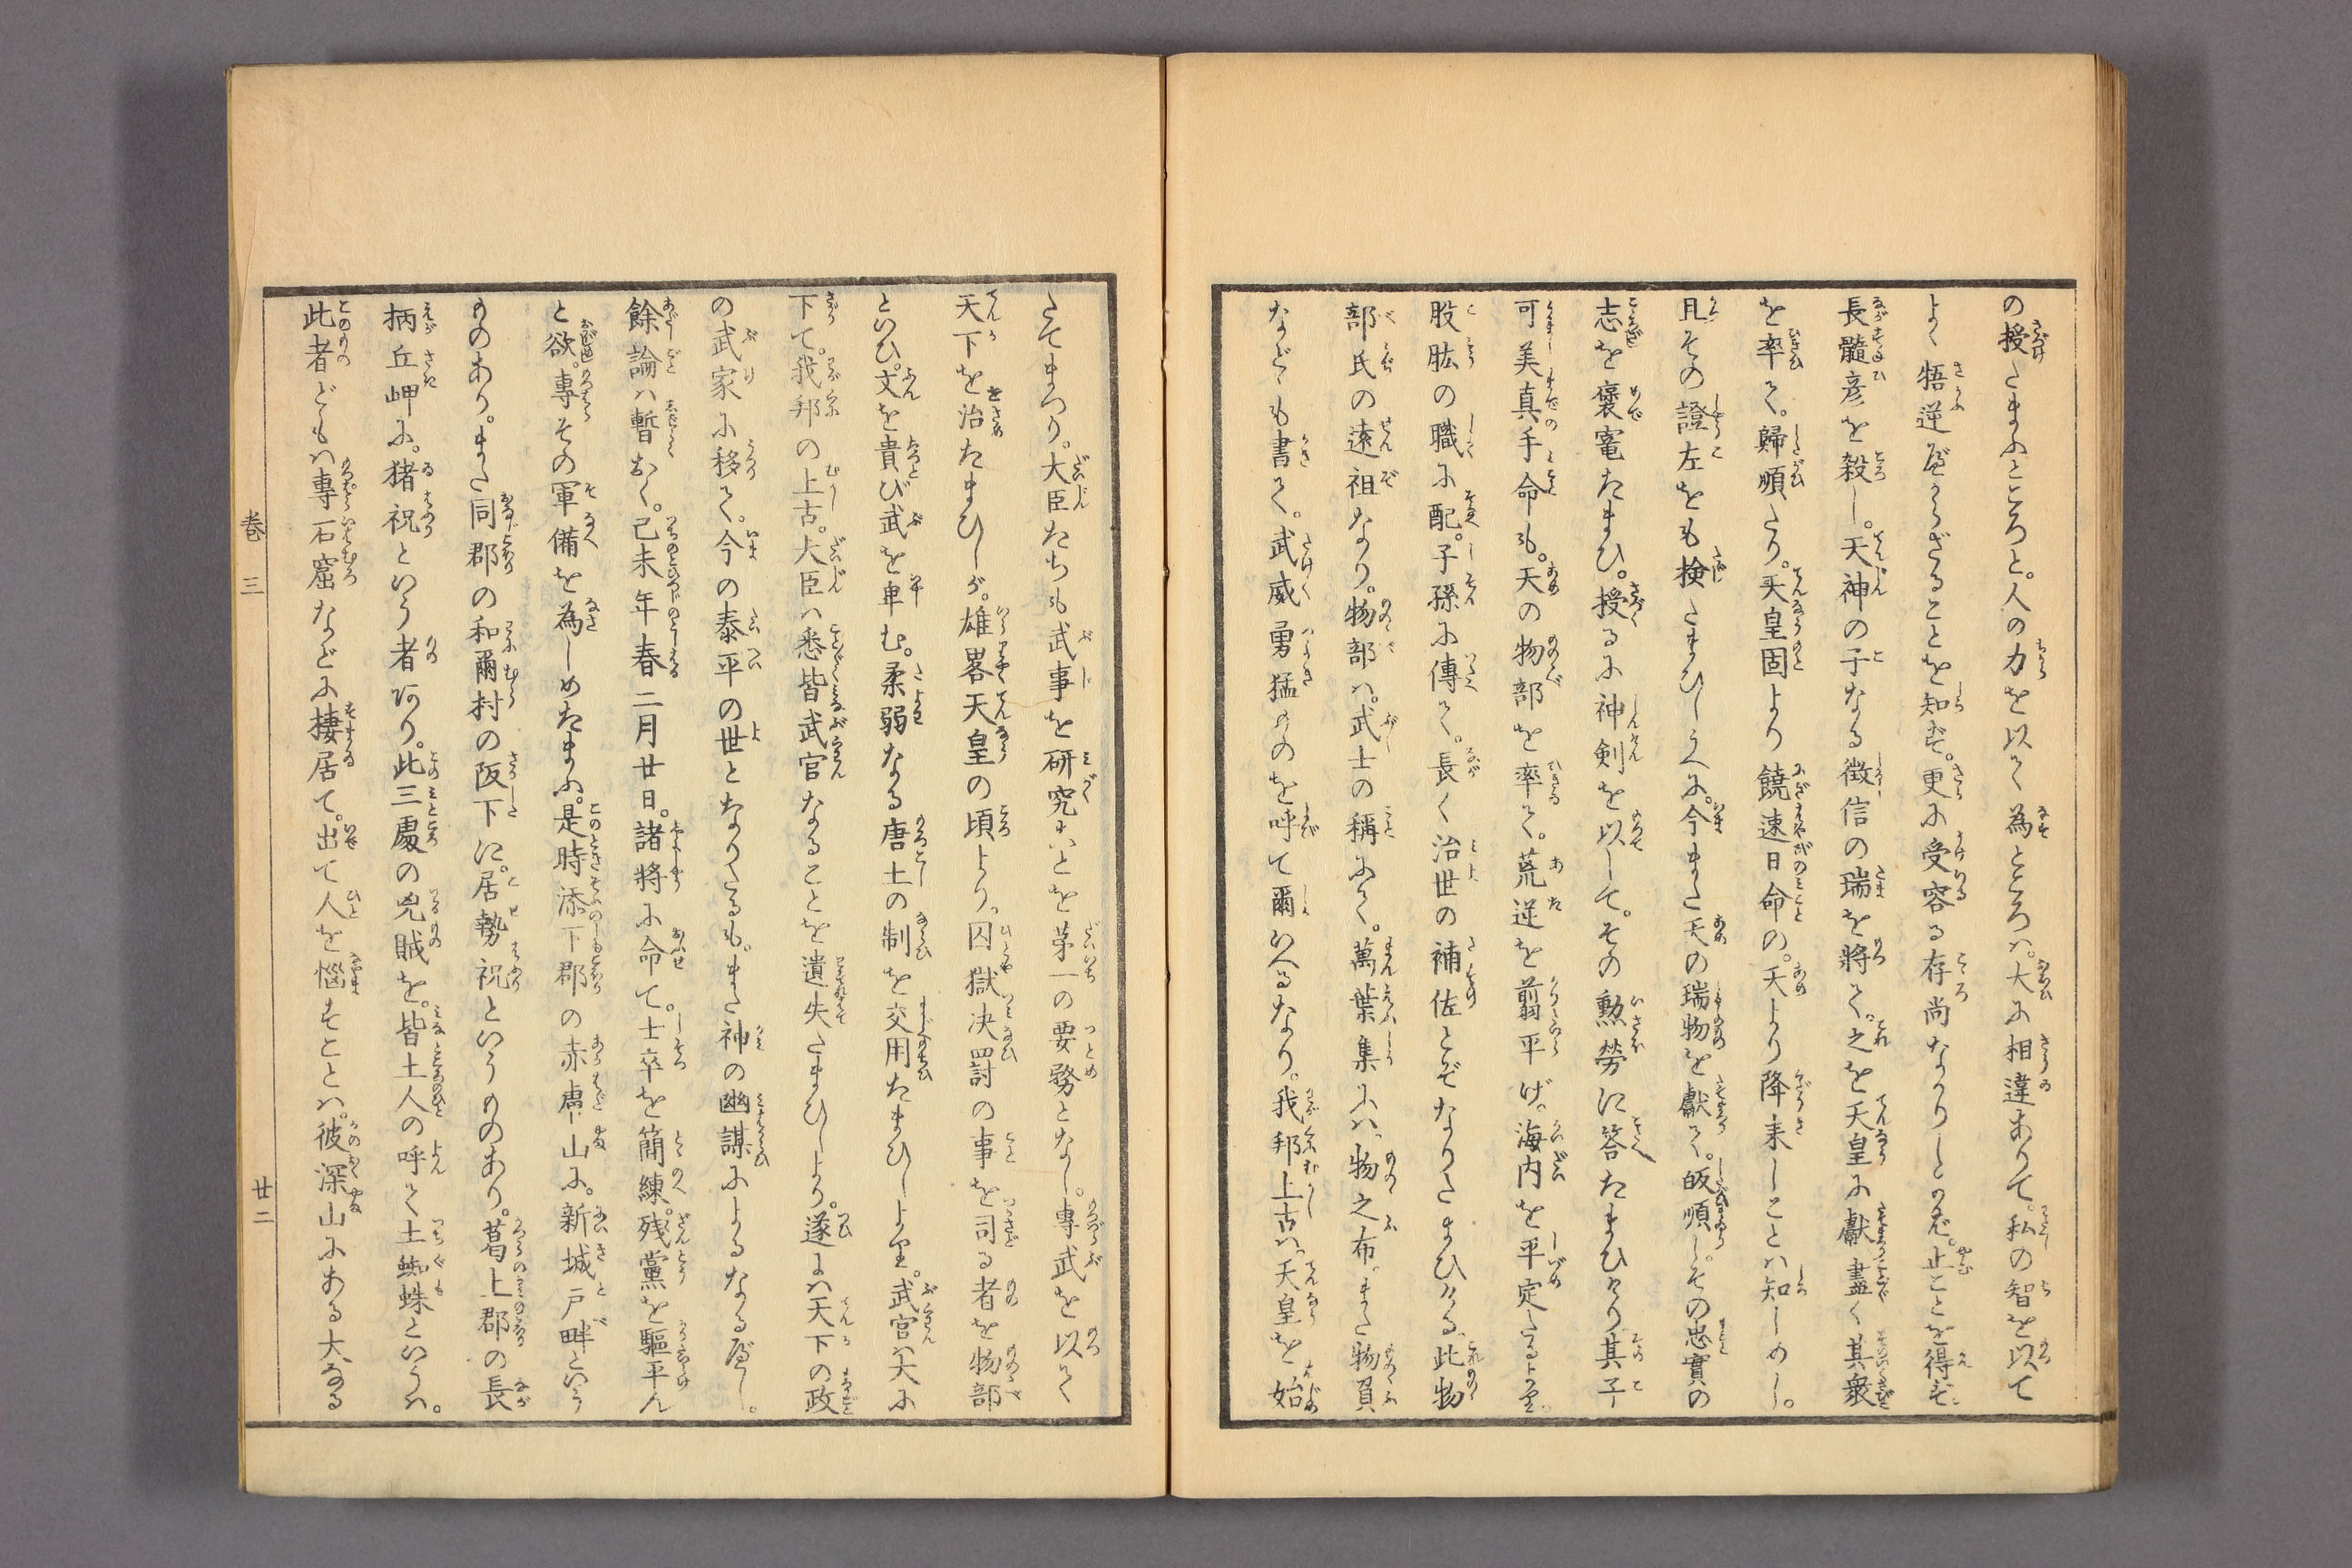 の授たまふところと。人の力を以て為ところハ。大に相違ありて。私の智を以て
よく牾逆べからざることを知ず。更に受容る存尚なかりしかば。止ことを得ず
長髓彦を殺し。天神の子なる徴信の瑞を將て。之を天皇に獻盡く其衆
を率ひて。歸順たり。天皇固より饒速日命の。天より降来しことハ知しめし。
且その證左をも検たまひしうへに。今また天の瑞物を獻て。皈順し。その忠實の
志を褒寵たまひ。授るに神剣を以して。その勲勞に答たまひけり其子
可美真手命も。天の物部を率て。荒逆を翦平げ。海内を平定たるより。
股肱の職に配。子孫に傳て。長く治世の補佐とぞなりたまひける。此物
部氏の遠祖なり。物部ハ。武士の稱にて。萬葉集にハ。物之布。また物負
なども書て。武威勇猛ものを呼て爾いへるなり。我邦上古ハ。天皇を始
たてまつり。大臣たちも武事を研究ことを茅一の要務となし。專武を以て
天下を治たまひしが。雄畧天皇の頃より。囚獄决罸の事を司る者を物部
といひ。文を貴び武を卑む。柔弱なる唐土の制を交用たまひしより。武官ハ大に
下て。我邦の上古。大臣ハ悉皆武官なることを遺失たまひしより。遂にハ天下の政
の武家に移て。今の泰平の世となりたるも。また神の幽謀によるなるべし。
餘論ハ暫おく。己未年春二月廿日。諸將に命て。士卒を簡練。残黨を驅平ん
と欲。專その軍備を為しめたまふ。是時添下郡の赤膚山に。新城戸畔という
ものあり。また同郡の和爾村の阪下に。居勢祝というものあり。葛上郡の長
柄丘岬に。猪祝という者あり。此三處の兇賊を。皆土人の呼て土蜘蛛という。
此者どもハ專石窟などに棲居て。出て人を惱すことハ。彼深山にある大なる
巻三
廿二